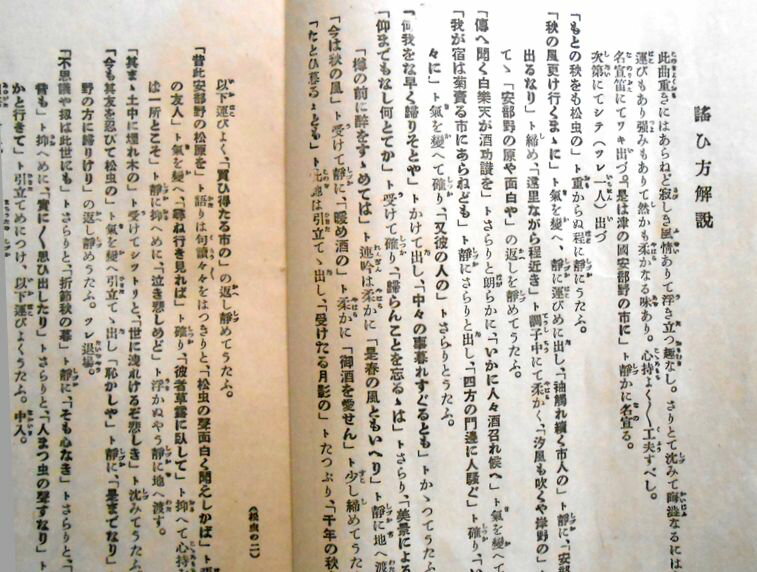 謠ひ方解説
此曲重きにはあらねど寂しき風情ありて浮き立つ趣なし。さりとて沈みて晦澁なるには
運びもあり強みもありて然かも柔かなる味あり。心持よく〱工夫すべし。
名宣笛にてワキ出づ。「是は津の國安部野の市に」靜かに名宣る。
次第にてシテ(ツレ一人)出づ
「もとの秋をも松虫の」ト重からぬ程に靜にうたふ。
「秋の風更け行くまゝに」ト氣を變へ、靜に運びめに出し、「袖觸れ續く市人の」ト靜に、「安部
出るなり」ト締め、「遠里ながら程近き」ト調子中にて柔かく、「汐風も吹くや岸野の」ト
てゝ「安部野の原や面白や」の返しを靜めてうたふ。
「傳へ聞く白樂天が酒功讃を」ト さらりと朗らかに、「いかに人々酒召れ候へ」ト氣を變へて
「我が宿は菊賣る市にあらねども」ト靜にさらりと出し、「四方の門邊に人騒ぐ」ト確り、「い
々に」ト氣を變へて確り、「又彼の人の」トさらりとうたふ。
「何我をな早く歸りそとや」トかけて出し、「中々の事暮れすぐるとも」トかゝつてうたふ
「仰までもなし何とてか」ト受けて確り、「歸らんことを忘るゝは」トさらり、「美景による
「樽の前に醉をすゝめては」ト連吟は柔かに「是春の風ともいへり」ト靜に地へ渡
「今は秋の風」ト受けて靜に、「暖め酒の」ト柔かに「御酒を愛せん」ト少し締めてうた
「たとひ暮るゝとも」ト 引立てゝ出し、「受けたる月影の」トたつぷり、「千年の秋
(松虫の二)
以下運びよく、「買ひ得たる市の」の返し靜めてうたふ。
「昔此安部野の松原を」ト語りは句讀々々をはつきりと「松虫の聲面白く聞えしかば」ト
の友人」ト氣を變へ、「尋ね行き見れば」ト確り、「彼者草露に臥して」ト抑へて心持
は一所とこそ」ト靜に抑へめに、「泣き悲しめど」ト浮かぬやう靜に地へ渡す。
「其まゝ土中に埋れ木の」ト受けてシツトリと、「世に洩れけるぞ悲しき」ト沈みてうたふ
「今も其友を忍びて松虫の」ト氣を變へ引立て、出し「恥かしや」ト靜に、「是までなり」
野の方に歸りけり」の返し靜めうたふ。ツレ退場。
「不思議や扨は此世にも」トさらりと、「折節秋の暮」ト靜に、「そも心なき」トさらりと、「
昔も」ト抑へめに、「實に〱思ひ出したり」トさらりと、「人まつ虫の聲すなり」ト
かと行きて」ト引立てめにつけ、以下運びよくうたふ。中入。